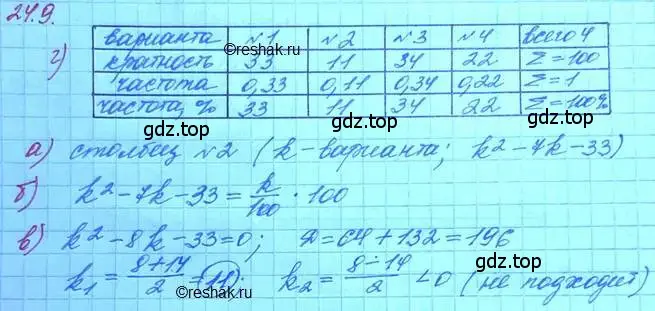 24.9.
г) варианта №1 №2 №3 №4 всего 4
кратность 33 11 34 22 Σ=100
частота 0,33 0,11 0,34 0,22 Σ=1
частота, % 33 11 34 22 Σ=100%
©reshak.ru
gdz.top gdz.top gdz.top
а) столбец №2 (k-варианта; k²-7k-33)
б) k²-7k-33 = k/100 · 100
gdz.top gdz.top gdz.top
в) k²-8k-33=0; D=64+132=196
k₁ = (8+14)/2 = 11; k₂ = (8-14)/2 <0 (не подходит)
©reshak.ru
gdz.top gdz.top gdz.top